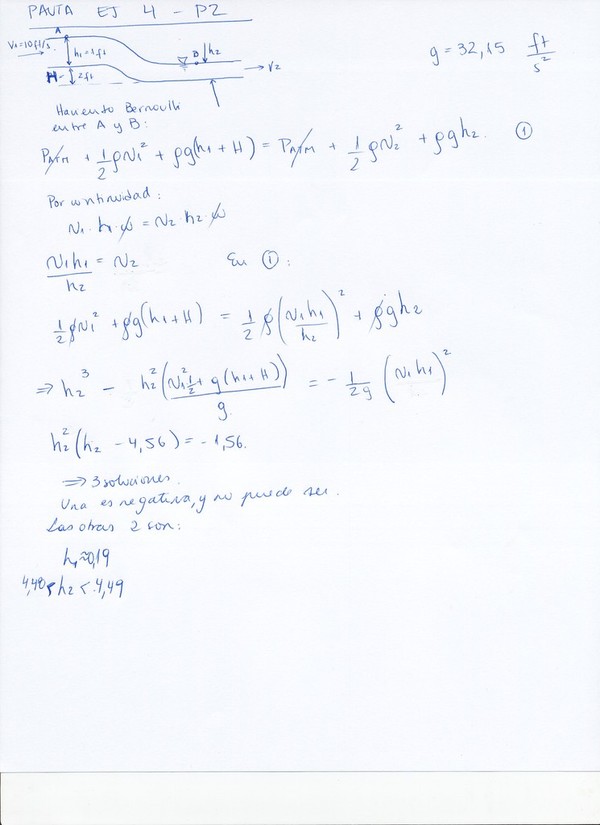 PAUTA EJ 4 - P2
A
V₁=10ft/s
h₁=1ft
H
2ft
B
h₂
V₂
g = 32,15 ft/s²
Haciendo Bernoulli
entre A y B:
PATM + 1/2 ρV₁² + ρg(h₁ + H) = PATM + 1/2 ρV₂² + ρgh₂. ①
Por continuidad:
V₁ · h₁ · ω = V₂ · h₂ · ω
V₁h₁/h₂ = V₂ En ①:
1/2 ρV₁² + ρg(h₁+H) = 1/2 ρ(V₁h₁/h₂)² + ρgh₂
⇒ h₂³ - h₂²(V₁² 1/2 + g(h₁+H))/g = - 1/2g (V₁h₁)²
h₂²(h₂ - 4,56) = -1,56.
⇒ 3 soluciones.
Una es negativa, y no puede ser.
Las otras 2 son:
≈0,19
h₂ < 4,49